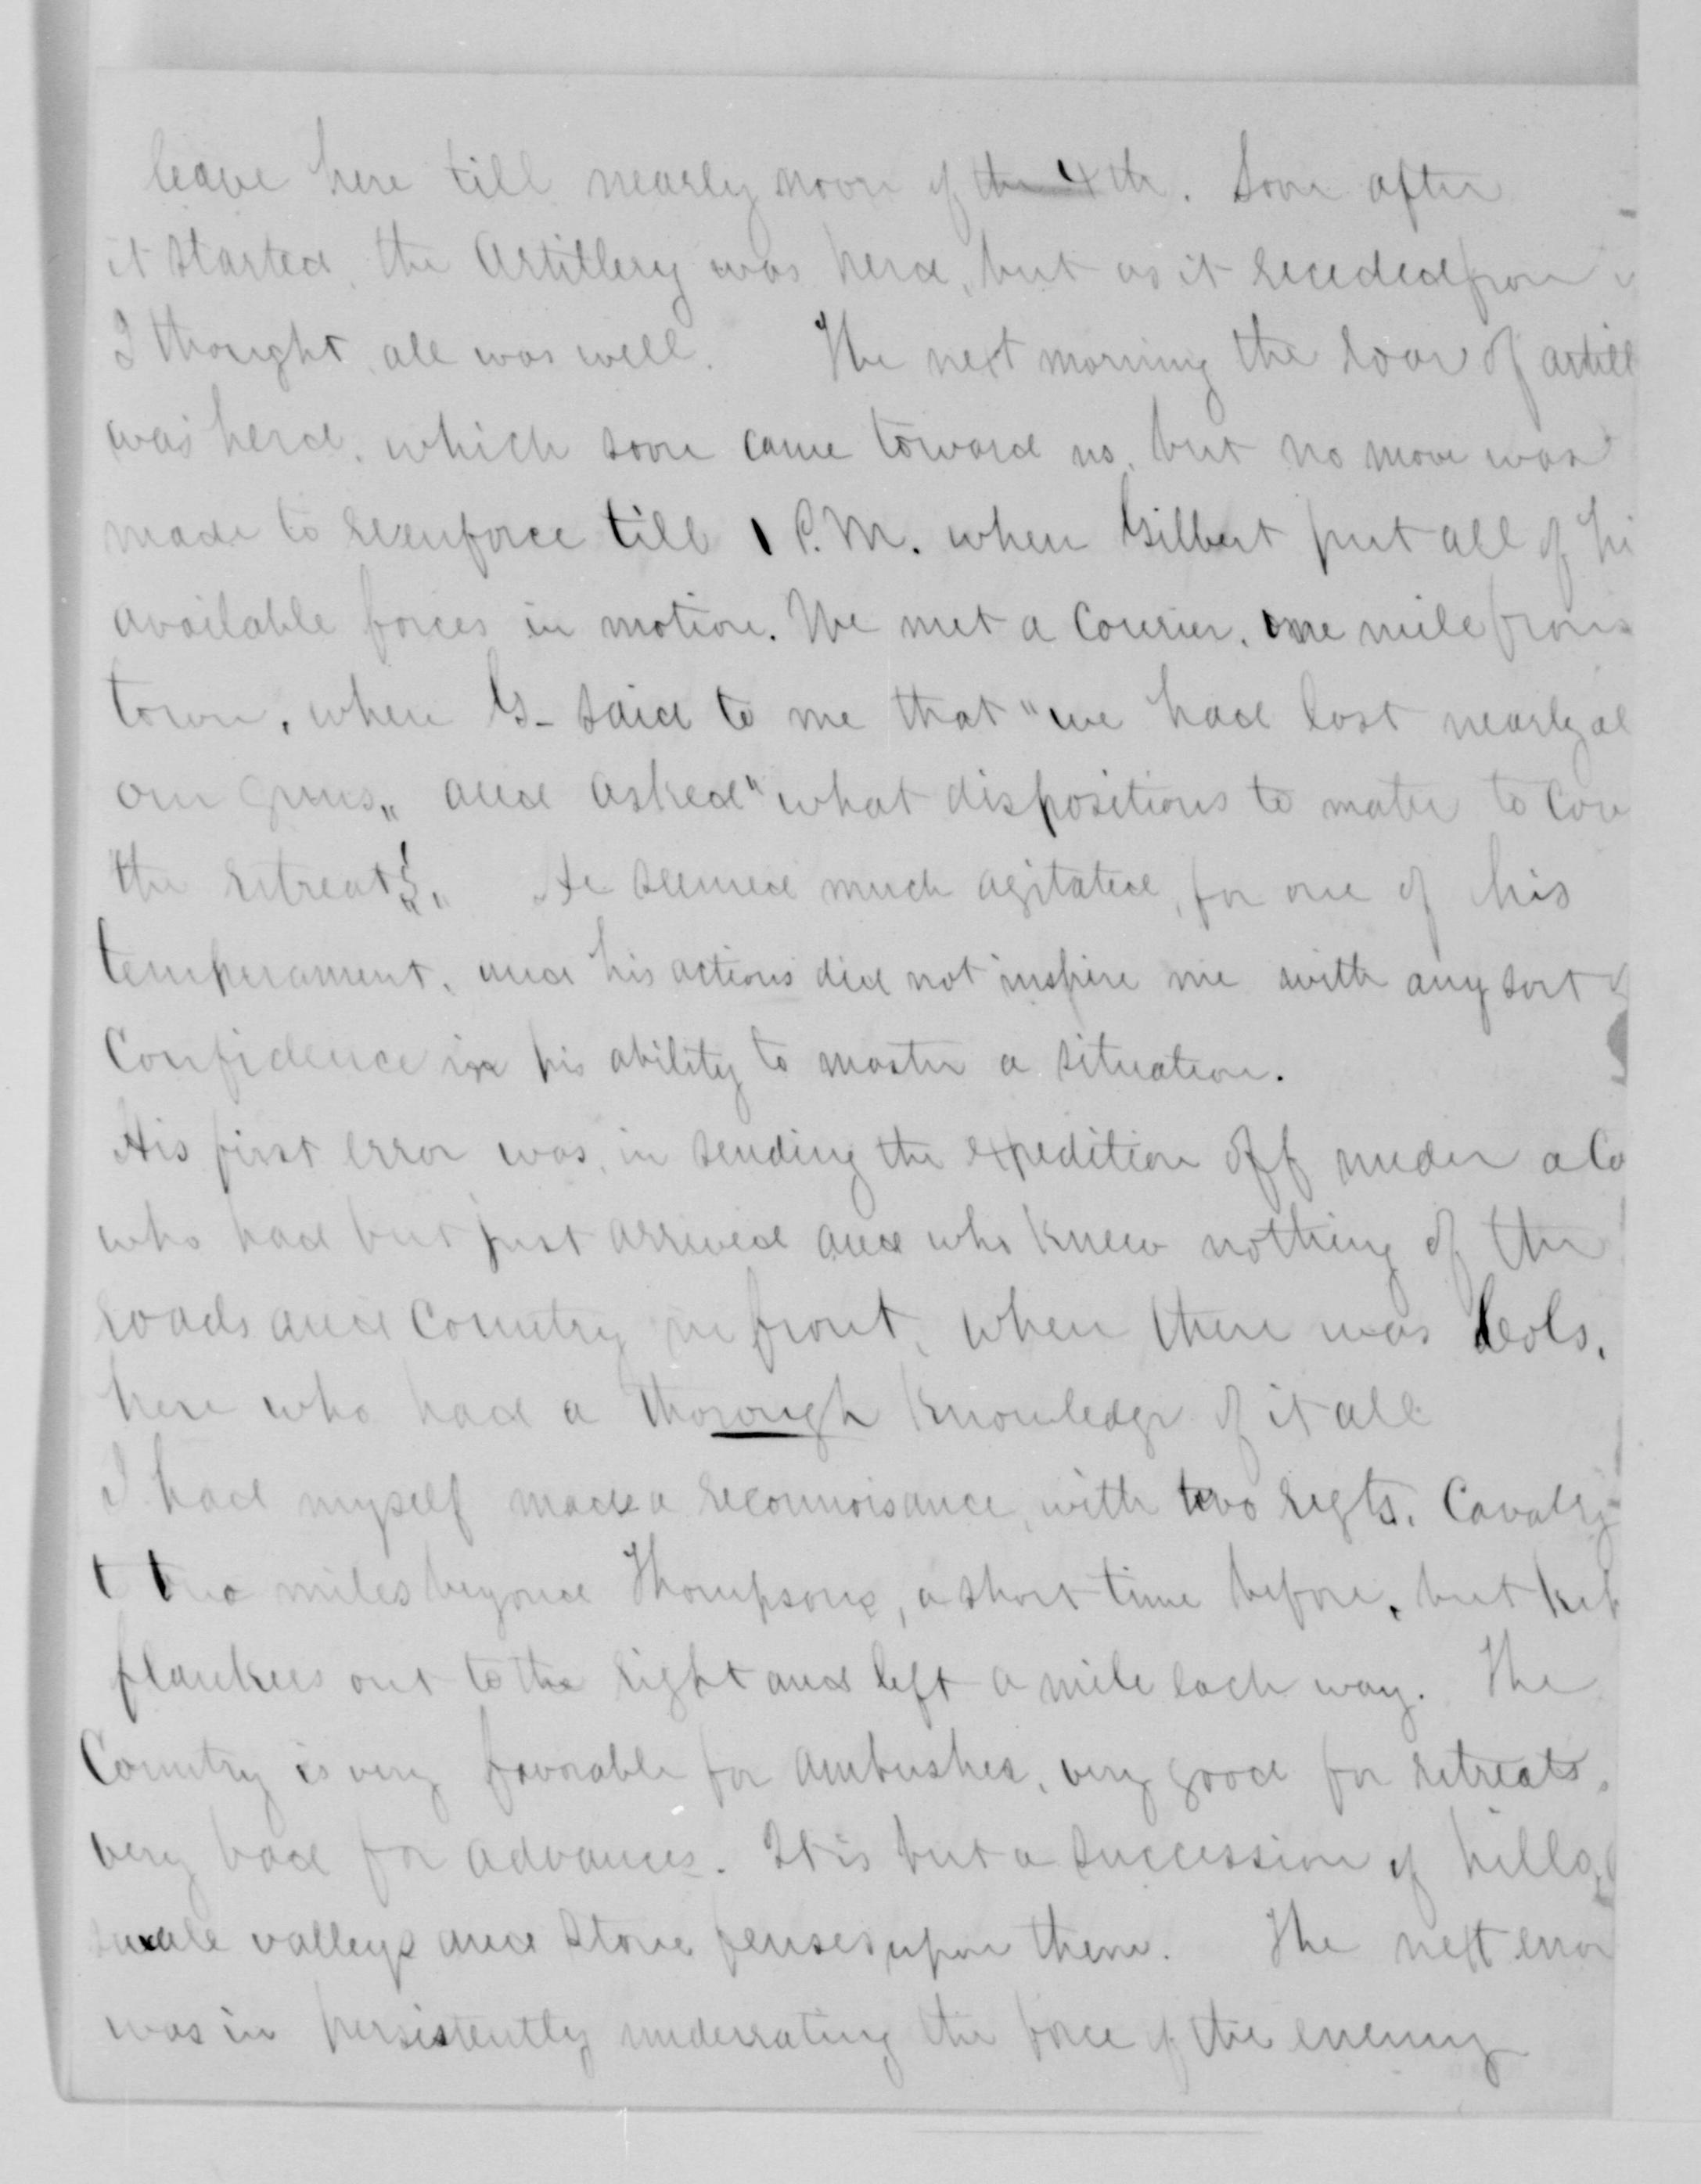 leave here till nearly noon of the 4th. Soon after
it started, the Artillery was herd, but as it receded from
I thought all was well. The next morning the roar of artill
was herd, which soon came toward us, but no move was
made to reenforce till 1 P.M. when Gilbert put all of hi
available forces in motion. We met a Courier, one mile from
town, when G- said to me that "we had lost nearly al
our guns" and asked "what dispositions to make to Cov
the retreat?!" He seemed much agitated, for one of his
temperament, and his actions did not inspire me with any sort of
Confidence in his ability to master a situation.
His first error was, in sending the expedition off under a Co
who had but just arrived and who knew nothing of the
roads and Country in front, when there was Cols.
here who had a thorough knowledge of it all
I had myself made a reconnoisance, with two regts. Cavalry
to two miles beyond Thompsons, a short time before, but kep
flankers out to the right and left a mile each way. The
Country is very favorable for ambushes, very good for retreats,
very bad for advances. It is but a succession of hills,
small valleys and stone fenses upon them. The next error
was in persistently underrating the force of the enemy